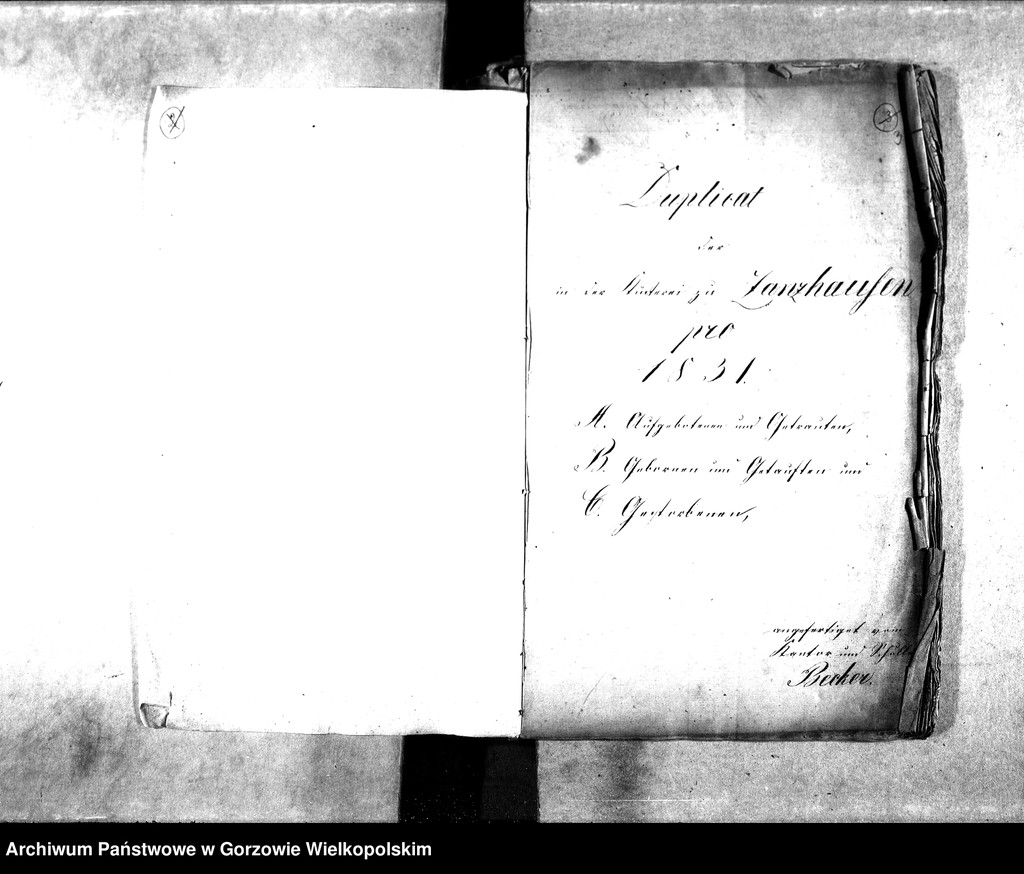 3
Duplicat
der
in der Küsterei zu Zanzhausen
pro
1831.
A. Aufgebotenen und Getrauten,
B. Gebornen und Getauften und
C. Gestorbenen,
angefertiget vom
Kantor und Schull
Becker.
Archiwum Państwowe w Gorzowie Wielkopolskim